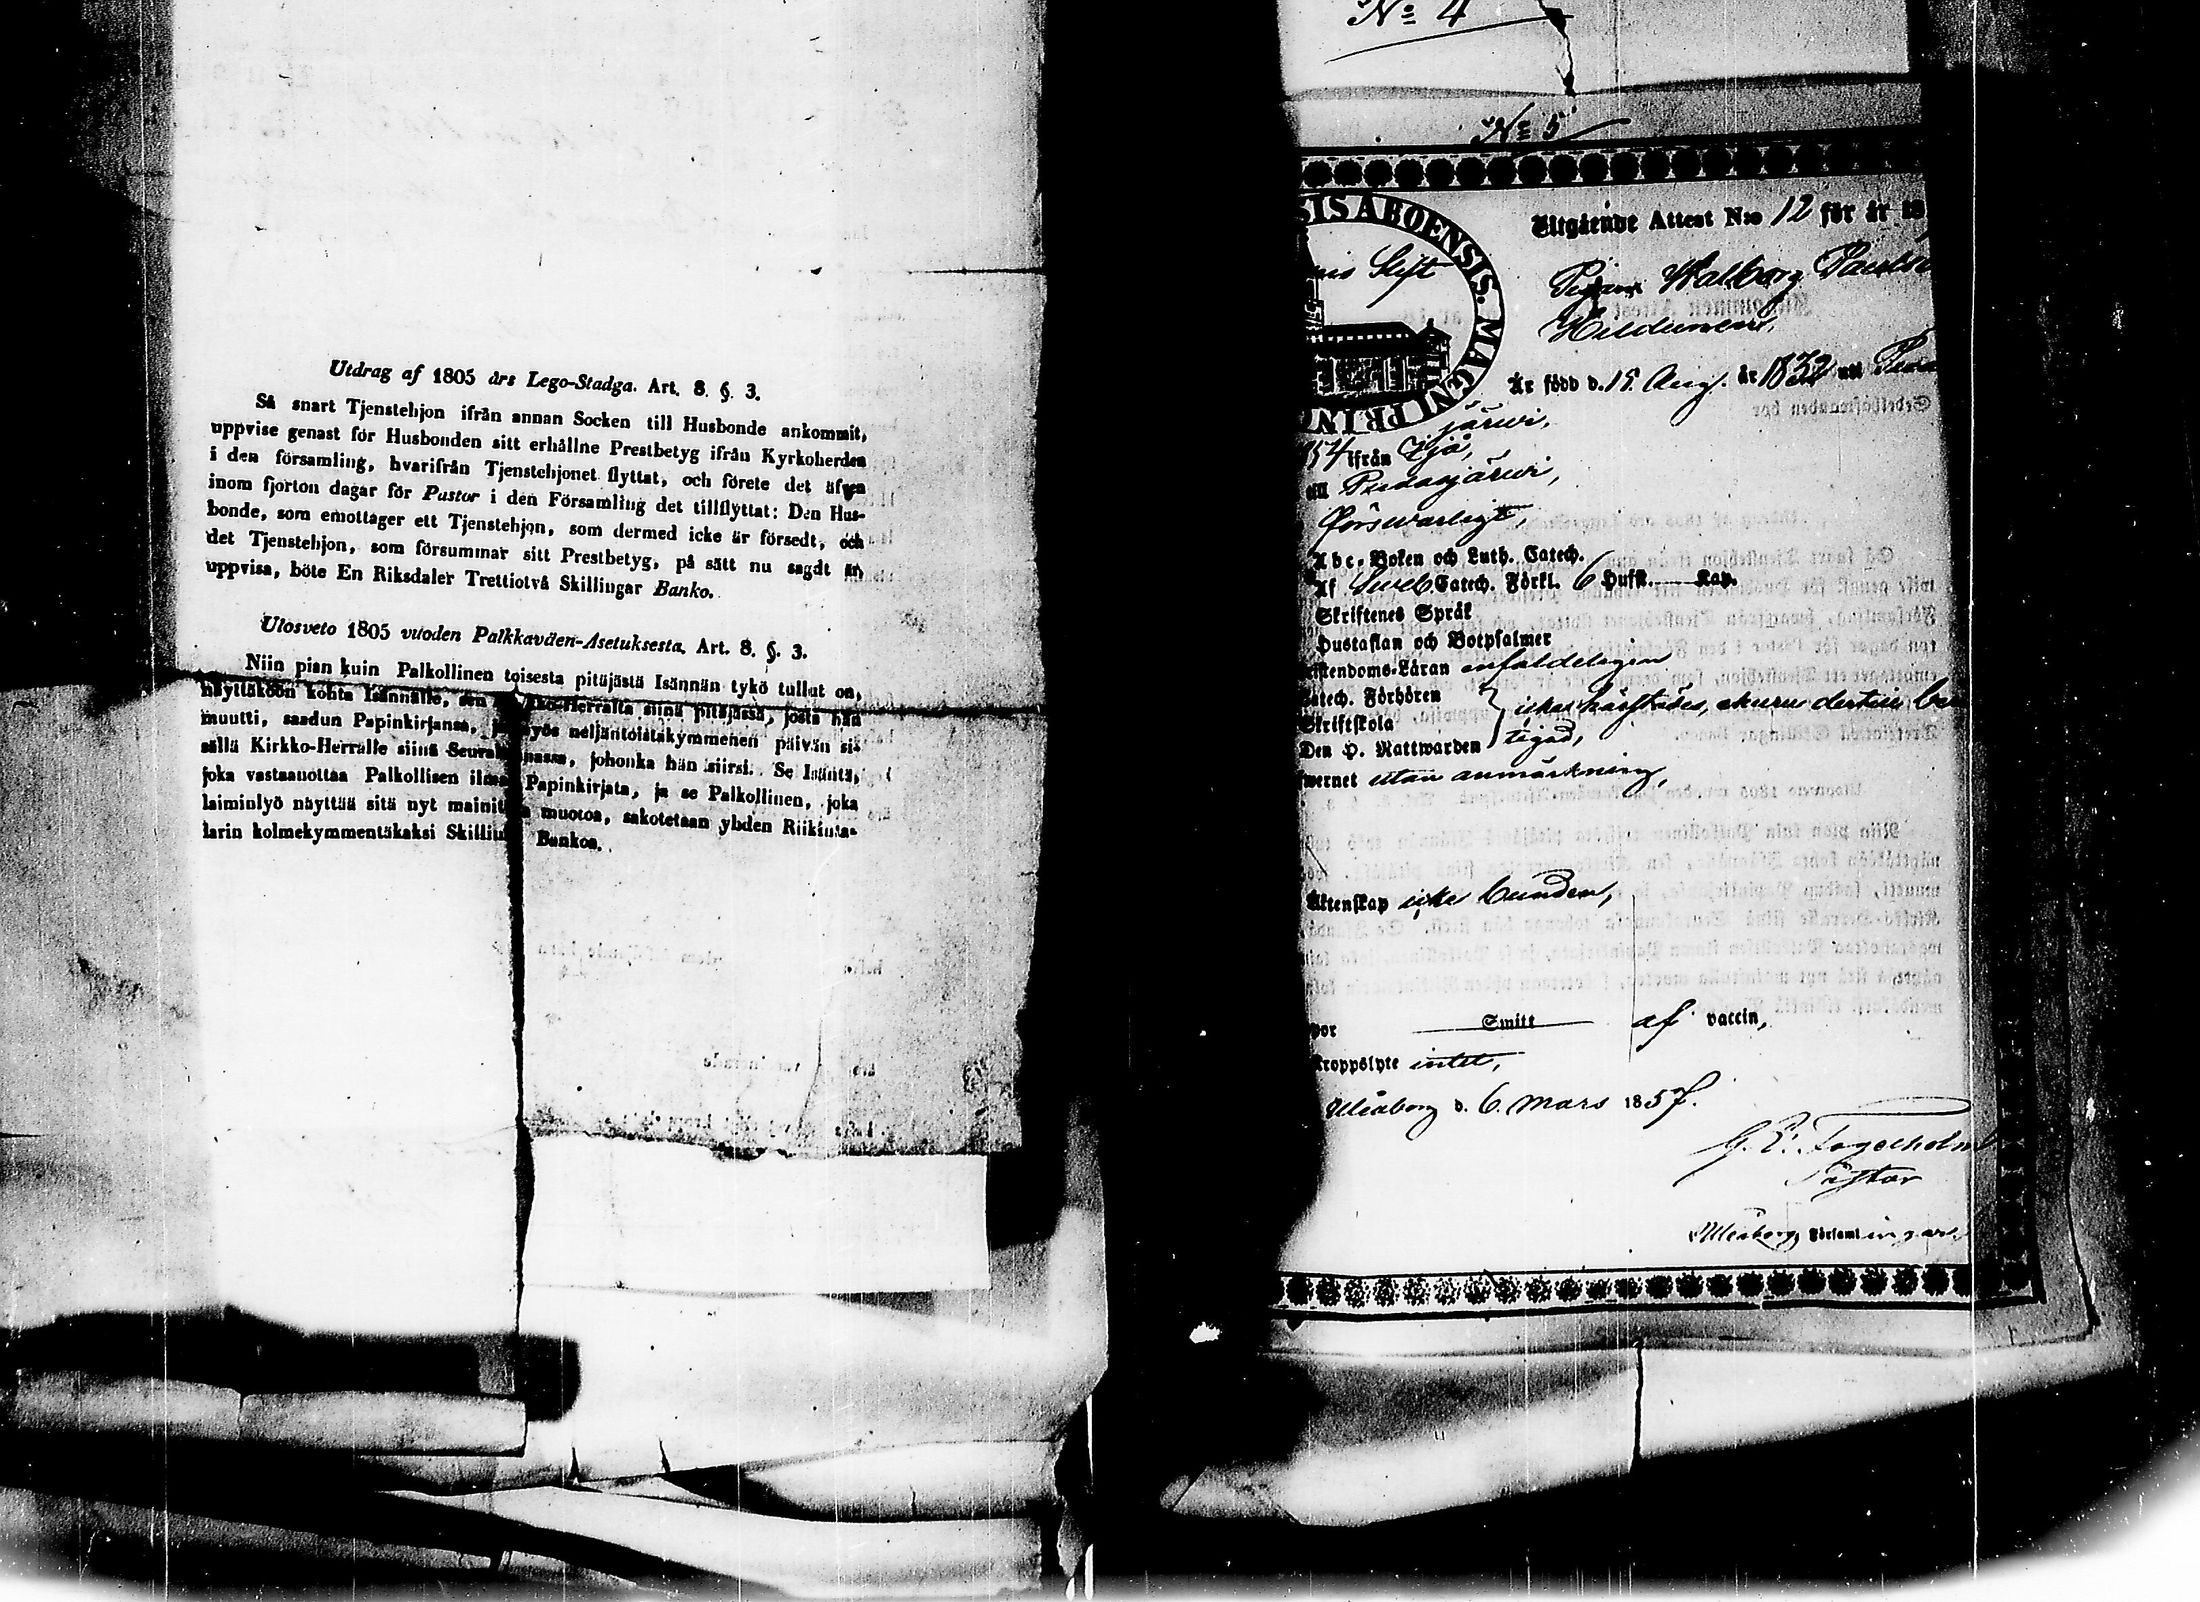 Utdrag af 1805 års Lego-Stadga. Art. 8. §. 3.
Så snart Tjenstehjon ifrån annan Socken till Husbonde ankommit,
uppvise genast för Husbonden sitt erhållne Prestbetyg ifrån Kyrkoherden
i den församling, hvarifrån Tjenstehjonet flyttat, och förete det äfven
inom fjorton dagar för Pastor i den Församling det tillflyttat: Den Hus-
bonde, som emottager ett Tjenstehjon, som dermed icke är försedt, och
det Tjenstehjon, som försummar sitt Prestbetyg, på sätt nu sagdt är,
uppvisa, böte En Riksdaler Trettiotvå Skillingar Banko.
Ulosveto 1805 vuoden Palkkaväen-Asetuksesta. Art. 8. §. 3.
Niin pian kuin Palkollinen toisesta pitäjästä Isännän tykö tullut on,
näyttäköön kohta Isännälle, sen ko-Herralta siinä pitäjässä, josta hän
muutti, saadun Papinkirjansa, ja yös neljäntoistakymmenen päivän si-
sällä Kirkko-Herralle siinä Seura nassa, johonka hän siirsi. Se Isäntä,
joka vastaanottaa Palkollisen ilma Papinkirjata, ja se Palkollinen, joka
laiminlyö näyttää sitä nyt mainit a muotoa, sakotetaan yhden Riikinta-
larin kolmekymmentäkaksi Skillin Bankoa.
No 4
No 5
SIS ABOENSIS. MAGNI PRINC
Stift
Utgående Attest N:o 12 för år 18
Pigan Walborg
är född d. 15 Aug. år 1832 uti
järwi,
54 ifrån Ijo,
till Pudasjärwi,
försvarligt,
Abc-Boken och Luth. Catech.
Af Sveb. Catech. Förkl. 6 Hufst. — Kap.
Skriftenes Språk
Hustaflan och Botpsalmer
istendoms-Läran enfaldeligen
atech. Förhören
Skriftskola
icke härstädes, ehuru dertill be
tigad,
Den H. Nattwarden
wernet utan anmärkning,
Äktenskap icke bunden,
por Smitt af vaccin,
kroppslyte intet,
Uleåborg d. 6. mars 1857.
G. E. Fogelholm
Pastor
Uleåborgs Församlingar.